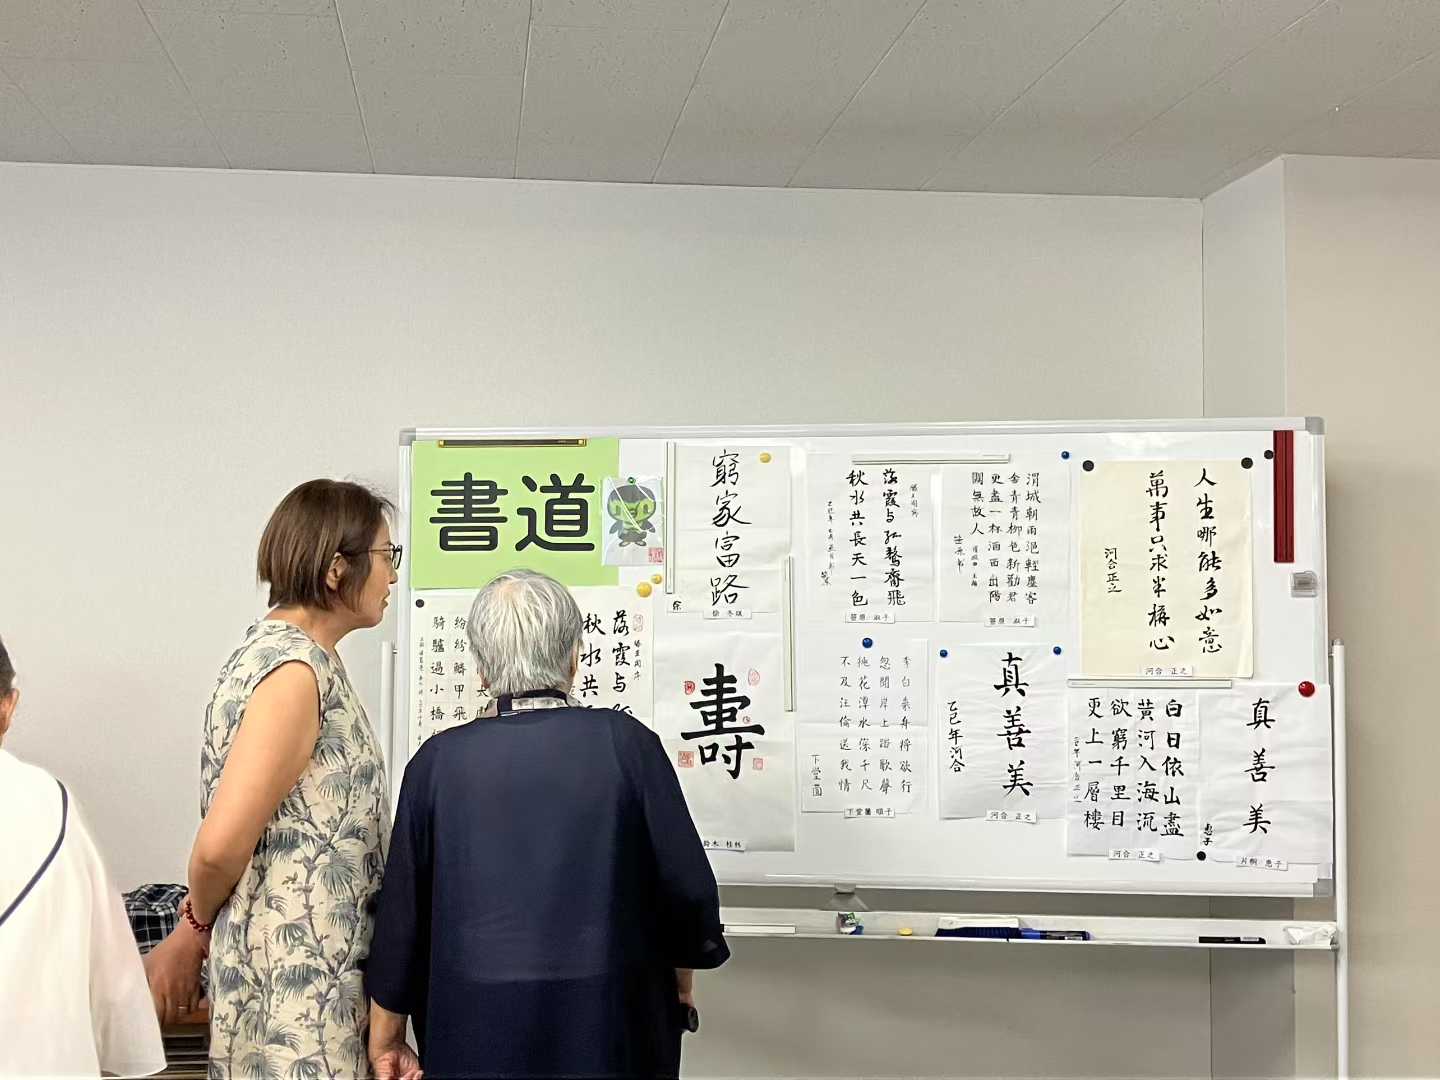 書道
窮家富路
徐
徐 冬瑛
落霞与孤鶩齊飛
秋水共長天一色
笹原 淑子
渭城朝雨浥軽塵客
舎青青柳色新勧君
更盡一杯酒西出陽
關無故人
笹原 淑子
人生哪能多如意
萬事只求半稱心
河合正之
河合 正之
落霞与
秋水共
紛紛鱗甲飛
騎驢過小橋
壽
鈴木 桂林
李白乗舟将欲行
忽聞岸上踏歌聲
桃花潭水深千尺
不及汪倫送我情
下堂薗 順子
真善美
乙巳年河合
河合 正之
白日依山盡
黄河入海流
欲窮千里目
更上一層樓
河合 正之
真善美
惠子
片桐 惠子